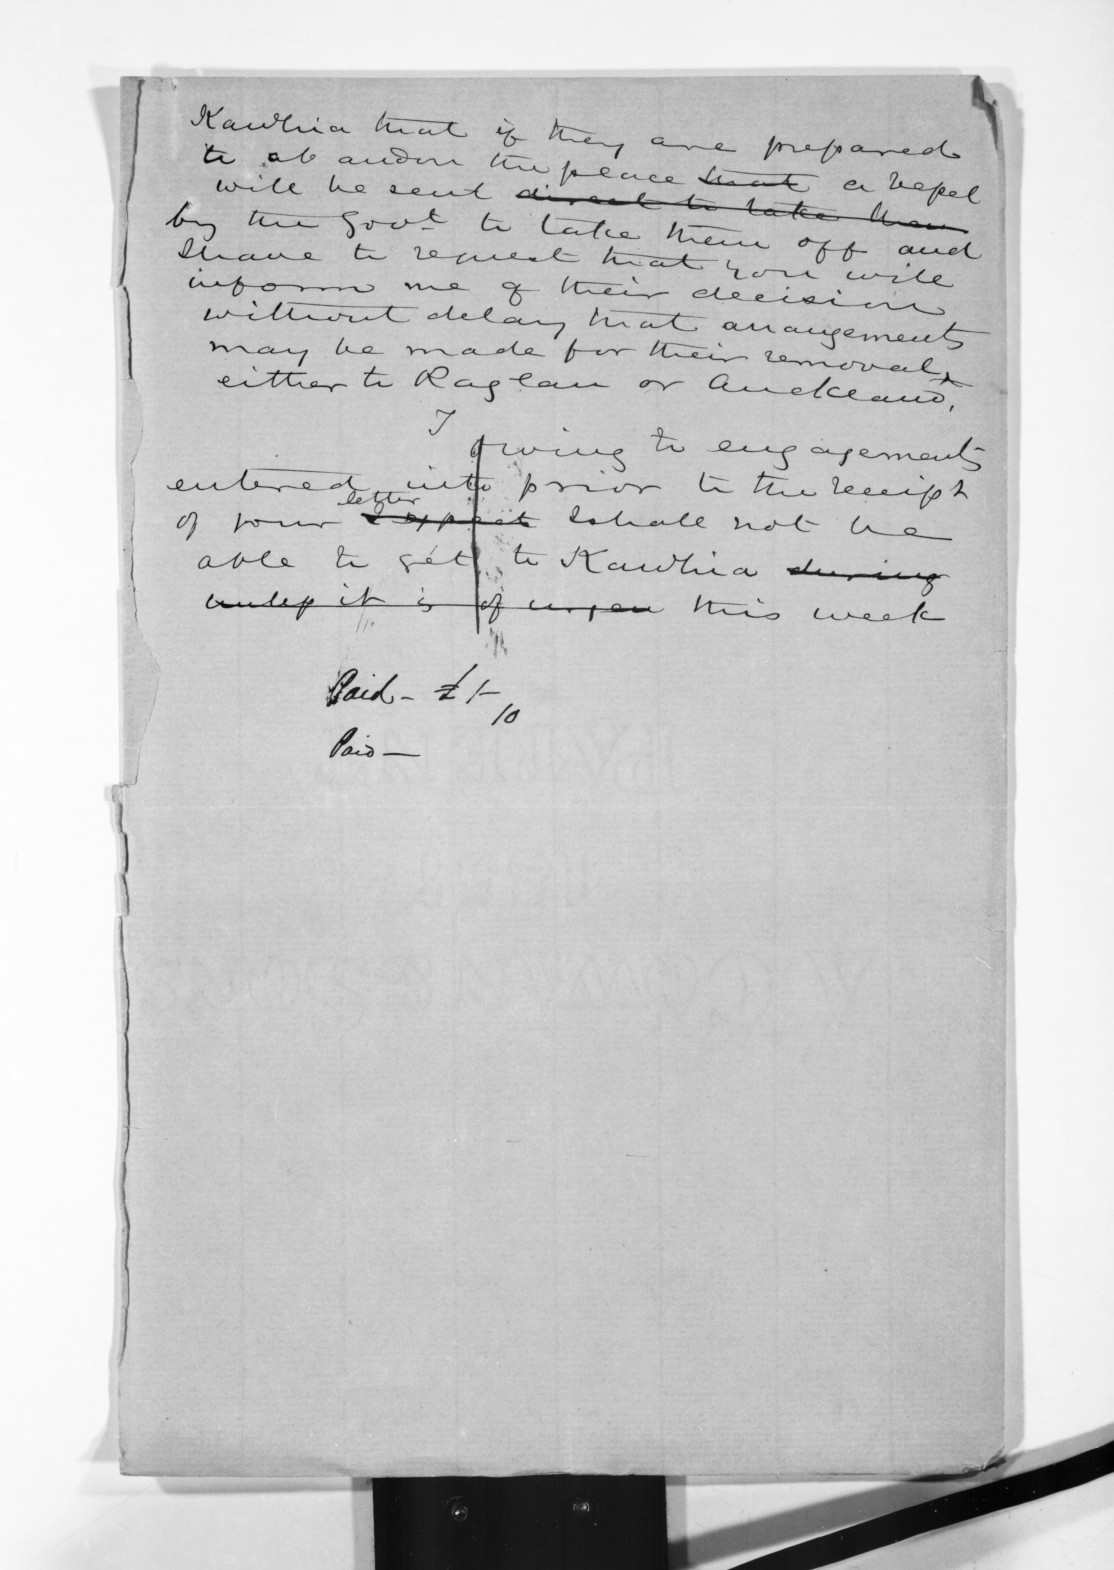 Kawhia that if they are prepared
to abandon the place that a vessel
will be sent direct to take them
by the Govt. to take them off and
I have to request that you will
inform me of their decision
without delay that arrangements
may be made for their removal
either to Raglan or Auckland,
I
owing to engagements
entered into prior to the receipt
letter
of your I expect I shall not be
able to get to Kawhia during
unless it is of urgen this week
Paid - £1/-
10
Paid -